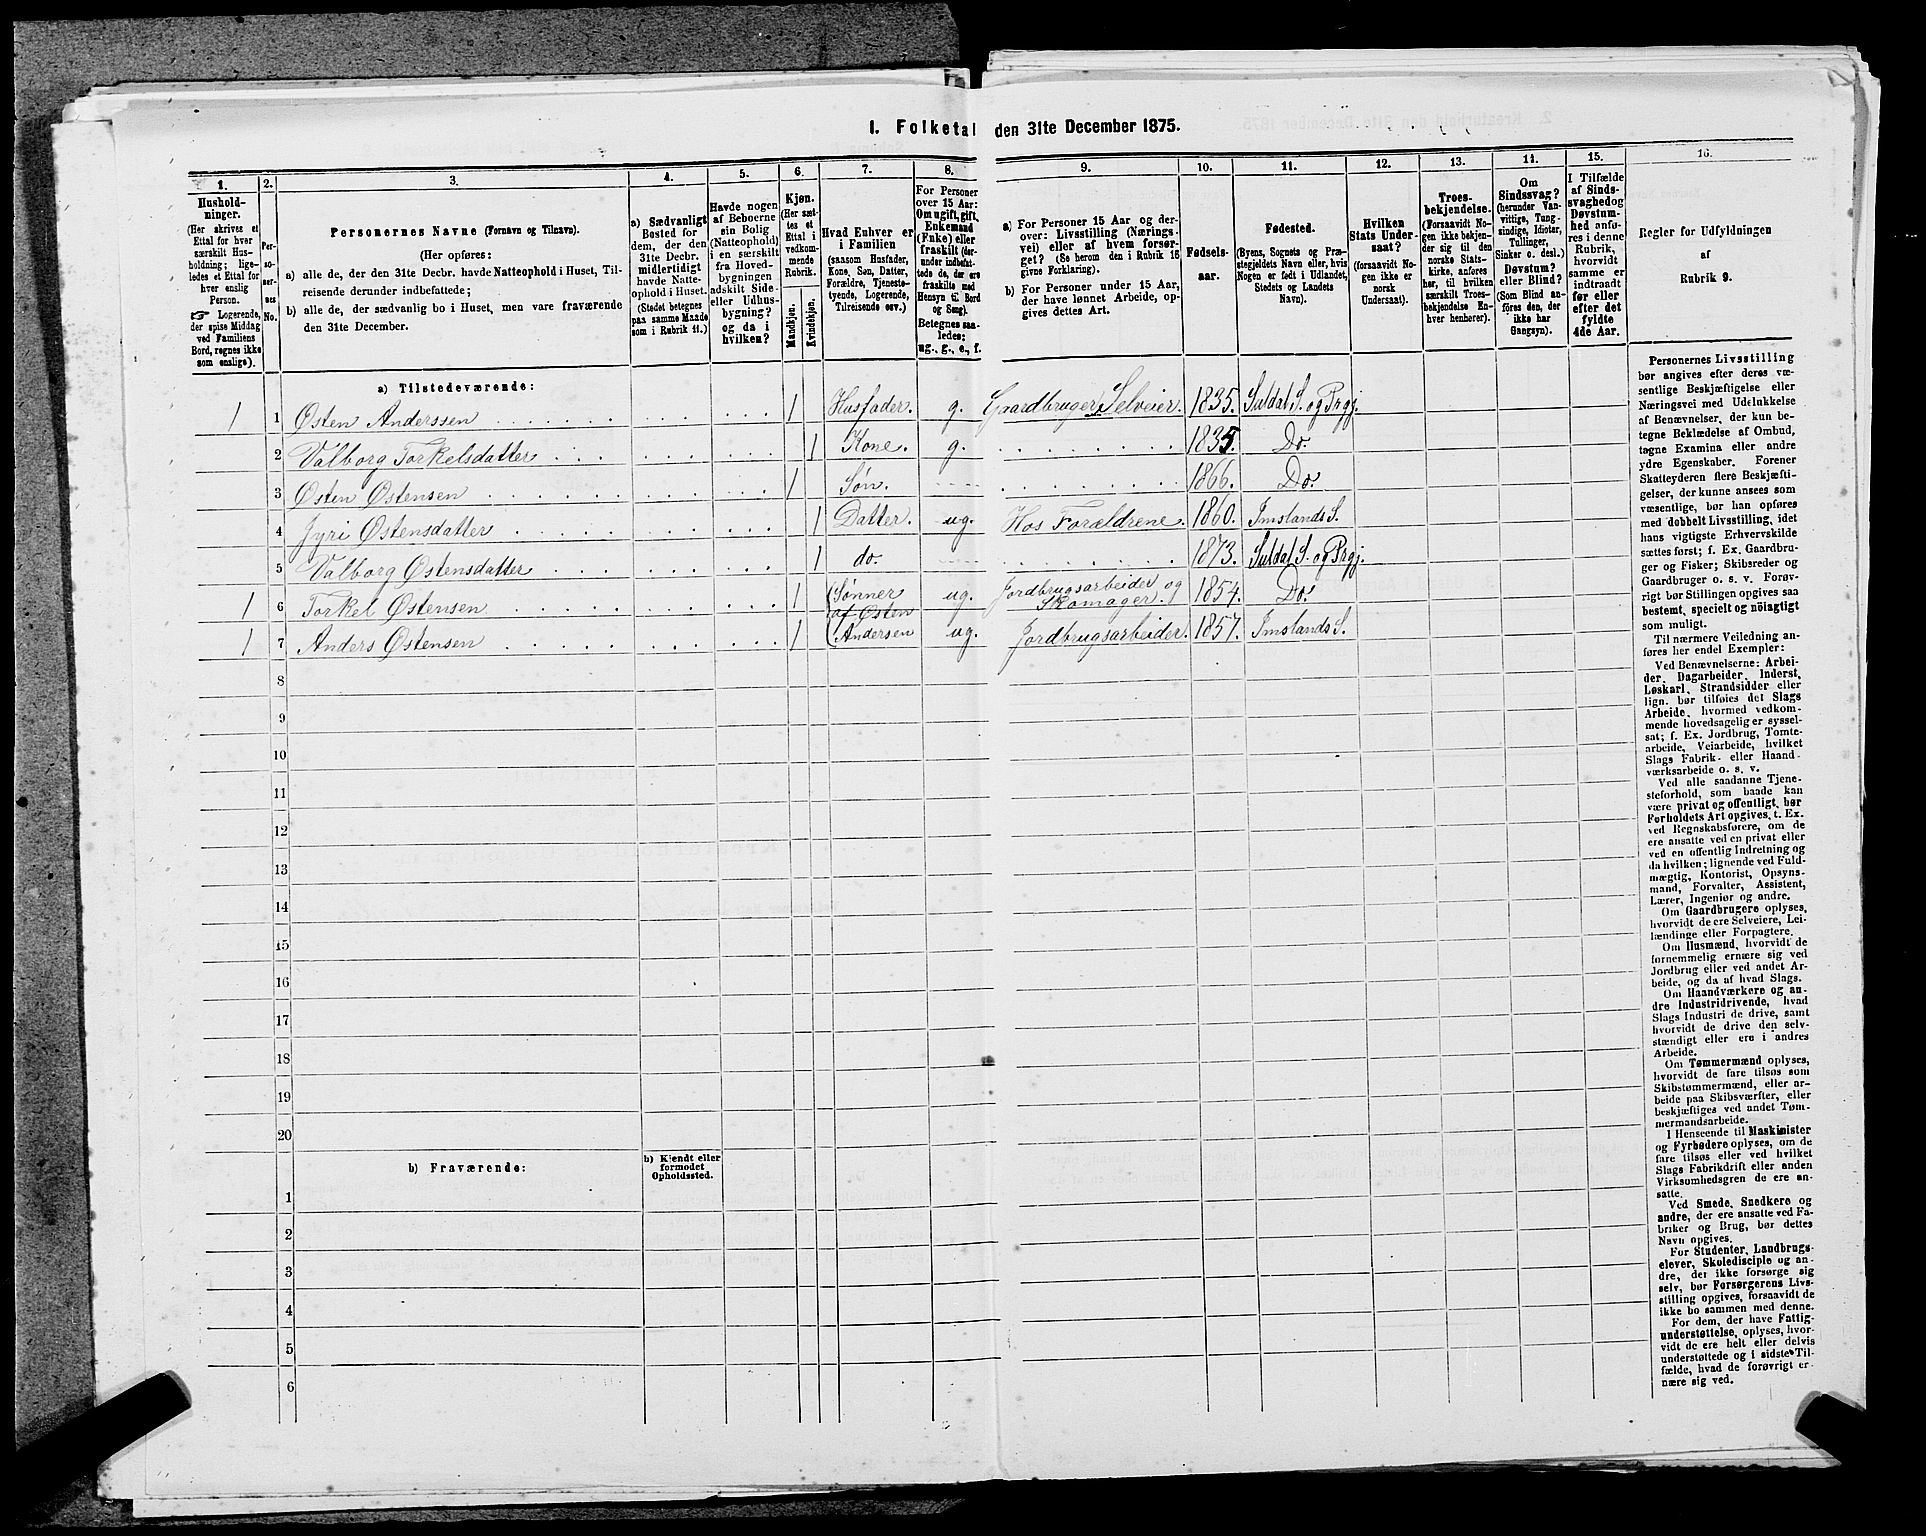 I. Folketal den 31te December 1875.
1.
2.
3.
4.
5.
6.
7.
8.
9.
10.
11.
12.
13.
14.
15.
16.
Hushold-
ninger.
(Her skrives et
Ettal for hver
særskilt Hus-
holdning; lige-
ledes et Ettal for
hver enslig
Person.
☞ Logerende,
der spise Middag
ved Familiens
Bord, regnes ikke
som enslige).
Per-
so-
ner-
nes
No.
Personernes Navne (Fornavn og Tilnavn).
(Her opføres:
a) alle de, der den 31te Decbr. havde Natteophold i Huset, Til-
reisende derunder indbefattede;
b) alle de, der sædvanlig bo i Huset, men vare fraværende
den 31te December.
a) Sædvanligt
Bosted for
dem, der den
31te Decbr.
midlertidigt
havde Natte-
ophold i Huset.
(Stedet betegnes
paa samme Maade
som i Rubrik 11.)
Havde nogen
af Beboerne
sin Bolig
(Natteophold)
i en særskilt
fra Hoved-
bygningen
adskilt Side-
eller Udhus-
bygning?
og da i
hvilken?
Kjøn.
(Her sæt-
tes et
Ettal i
vedkom-
mende
Rubrik.
Mandkjøn.
Kvindekjøn.
Hvad Enhver er
i Familien
(saasom Husfader,
Kone, Søn, Datter,
Forældre, Tjeneste-
tyende, Logerende,
Tilreisende osv.)
For Personer
over 15 Aar:
Om ugift, gift,
Enkemand
(Enke) eller
fraskilt (der-
under indbefat-
tede de, der ere
fraskilte med
Hensyn til Bord
og Seng).
Betegnes saa-
ledes:
ug., g., e., f.
a) For Personer 15 Aar og der-
over: Livsstilling (Nærings-
vei) eller af hvem forsør-
get? (Se herom den i Rubrik 16
givne Forklaring).
b) For Personer under 15 Aar,
der have lønnet Arbeide, op-
gives dettes Art.
Fødsels-
aar.
Fødested.
(Byens, Sognets og Præ-
stegjeldets Navn eller, hvis
Nogen er født i Udlandet,
Stedets og Landets
Navn).
Hvilken
Stats Under-
saat?
(forsaavidt No-
gen ikke er
norsk
Undersaat).
Troes-
bekjendelse.
(Forsaavidt No-
gen ikke bekjen-
der sig til den
norske Stats-
kirke, anføres
her, til hvilken
særskilt Troes-
bekjendelse En-
hver henhører).
Om
Sindssvag?
(herunder Van-
vittige, Tung-
sindige, Idioter,
Tullinger,
Sinker o. desl.).
Døvstum?
eller Blind?
(Som Blind an-
føres den, der
ikke har
Gangsyn).
I Tilfælde
af Sinds-
svaghed og
Døvstum-
hed anfø-
res i denne
Rubrik,
hvorvidt
samme er
indtraadt
før eller
efter det
fyldte
4de Aar.
Regler for Udfyldningen
af
Rubrik 9.
a) Tilstedeværende:
1 1 Østen Anderssen 1 Husfader. g. Gaardbruger Selveier. 1835. Suldal S. og Prgj.
2 Valborg Torkelsdatter 1 Kone. g. 1835. Do.
3 Østen Østensen 1 Søn. 1866. Do.
4 Jyri Østensdatter 1 Datter. ug. Hos Forældrene. 1860. Imslands S.
5 Valborg Østensdatter 1 do. 1873. Suldal S. og Prgj.
1 6 Torkel Østensen 1 Sønner ug. Jordbrugsarbeider og 1854. Do.
af Østen Skomager.
1 7 Anders Østensen 1 Andersen ug. Jordbrugsarbeider. 1857. Imslands S.
8
9
10
11
12
13
14
15
16
17
18
19
20
b) Fraværende:
b) Kjendt eller
formodet
Opholdssted.
1
2
3
4
5
6
Personernes Livsstilling
bør angives efter deres væ-
sentlige Beskjæftigelse eller
Næringsvei med Udelukkelse
af Benævnelser, der kun be-
tegne Beklædelse af Ombud,
tagne Examina eller andre
ydre Egenskaber. Forener
Skatteyderen flere Beskjæfti-
gelser, der kunne ansees som
væsentlige, bør han opføres
med dobbelt Livsstilling, idet
hans vigtigste Erhvervskilde
sættes først; f. Ex. Gaardbru-
ger og Fisker; Skibsreder og
Gaardbruger o. s. v. Forøv-
rigt bør Stillingen opgives saa
bestemt, specielt og nöiagtigt
som muligt.
Til nærmere Veiledning an-
føres her endel Exempler:
Ved Benævnelserne: Arbei-
der, Dagarbeider, Inderst,
Løskarl, Strandsidder eller
lign. bør tilføies det Slags
Arbeide, hvormed vedkom-
mende hovedsagelig er syssel-
sat; f. Ex. Jordbrug, Tomte-
arbeide, Veiarbeide, hvilket
Slags Fabrik- eller Haand-
værksarbeide o. s. v.
Ved alle saadanne Tjene-
steforhold, som baade kan
være privat og offentligt, bør
Forholdets Art opgives, t. Ex.
ved Regnskabsførere, om de
ere ansatte ved en privat eller
ved en offentlig Indretning og
da hvilken; lignende ved Fuld-
mægtig, Kontorist, Opsyns-
mand, Forvalter, Assistent,
Lærer, Ingeniør og andre.
Om Gaardbrugere oplyses,
hvorvidt de ere Selveiere, Lei-
lændinge eller Forpagtere.
Om Husmænd, hvorvidt de
fornemmelig ernære sig ved
Jordbrug eller ved andet Ar-
beide, og da af hvad Slags.
Om Haandværkere og an-
dre Industridrivende, hvad
Slags Industri de drive, samt
hvorvidt de drive den selv-
stændigt eller ere i andres
Arbeide.
Om Tømmermænd oplyses,
hvorvidt de fare tilsøs som
Skibstømmermænd, eller ar-
beide paa Skibsværfter, eller
beskjæftiges ved andet Tøm-
mermandsarbeide.
I Henseende til Maskinister
og Fyrbødere oplyses, om de
fare tilsøs eller ved hvilket
Slags Fabrikdrift eller anden
Virksomhedsgren de ere an-
satte.
Ved Smede, Snedkere og
andre, der ere ansatte ved Fa-
briker og Brug, bør dettes
Navn opgives.
For Studenter, Landbrugs-
elever, Skoledisciple og an-
dre, der ikke forsørge sig
selv, bør Forsørgerens Livs-
stilling opgives, forsaavidt de
ikke bo sammen med denne.
For dem, der have Fattig-
understøttelse, oplyses, hvor-
vidt de ere helt eller delvis
understøttede og i sidste Til-
fælde, hvad de forøvrigt er-
nære sig ved.